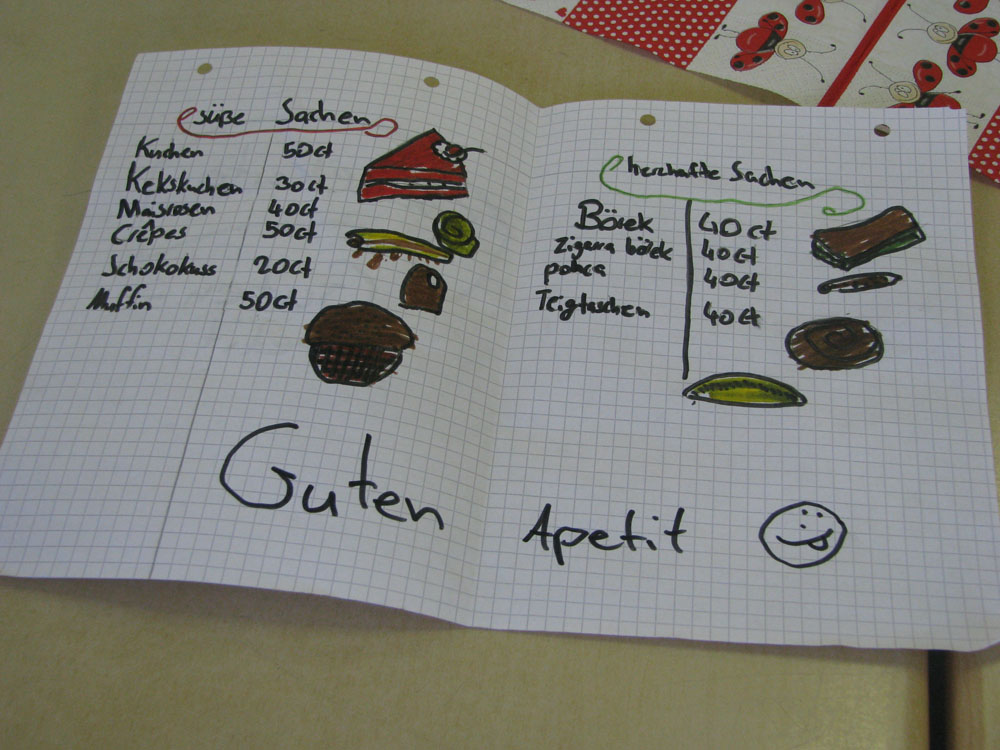 süße Sachen
Kuchen 50ct
Kekskuchen 30ct
Maisrosen 40ct
Crêpes 50ct
Schokokuss 20ct
Muffin 50ct
herzhafte Sachen
Börek 40ct
Zigarra börek 40ct
pohca 40ct
Teigtaschen 40ct
Guten Apetit